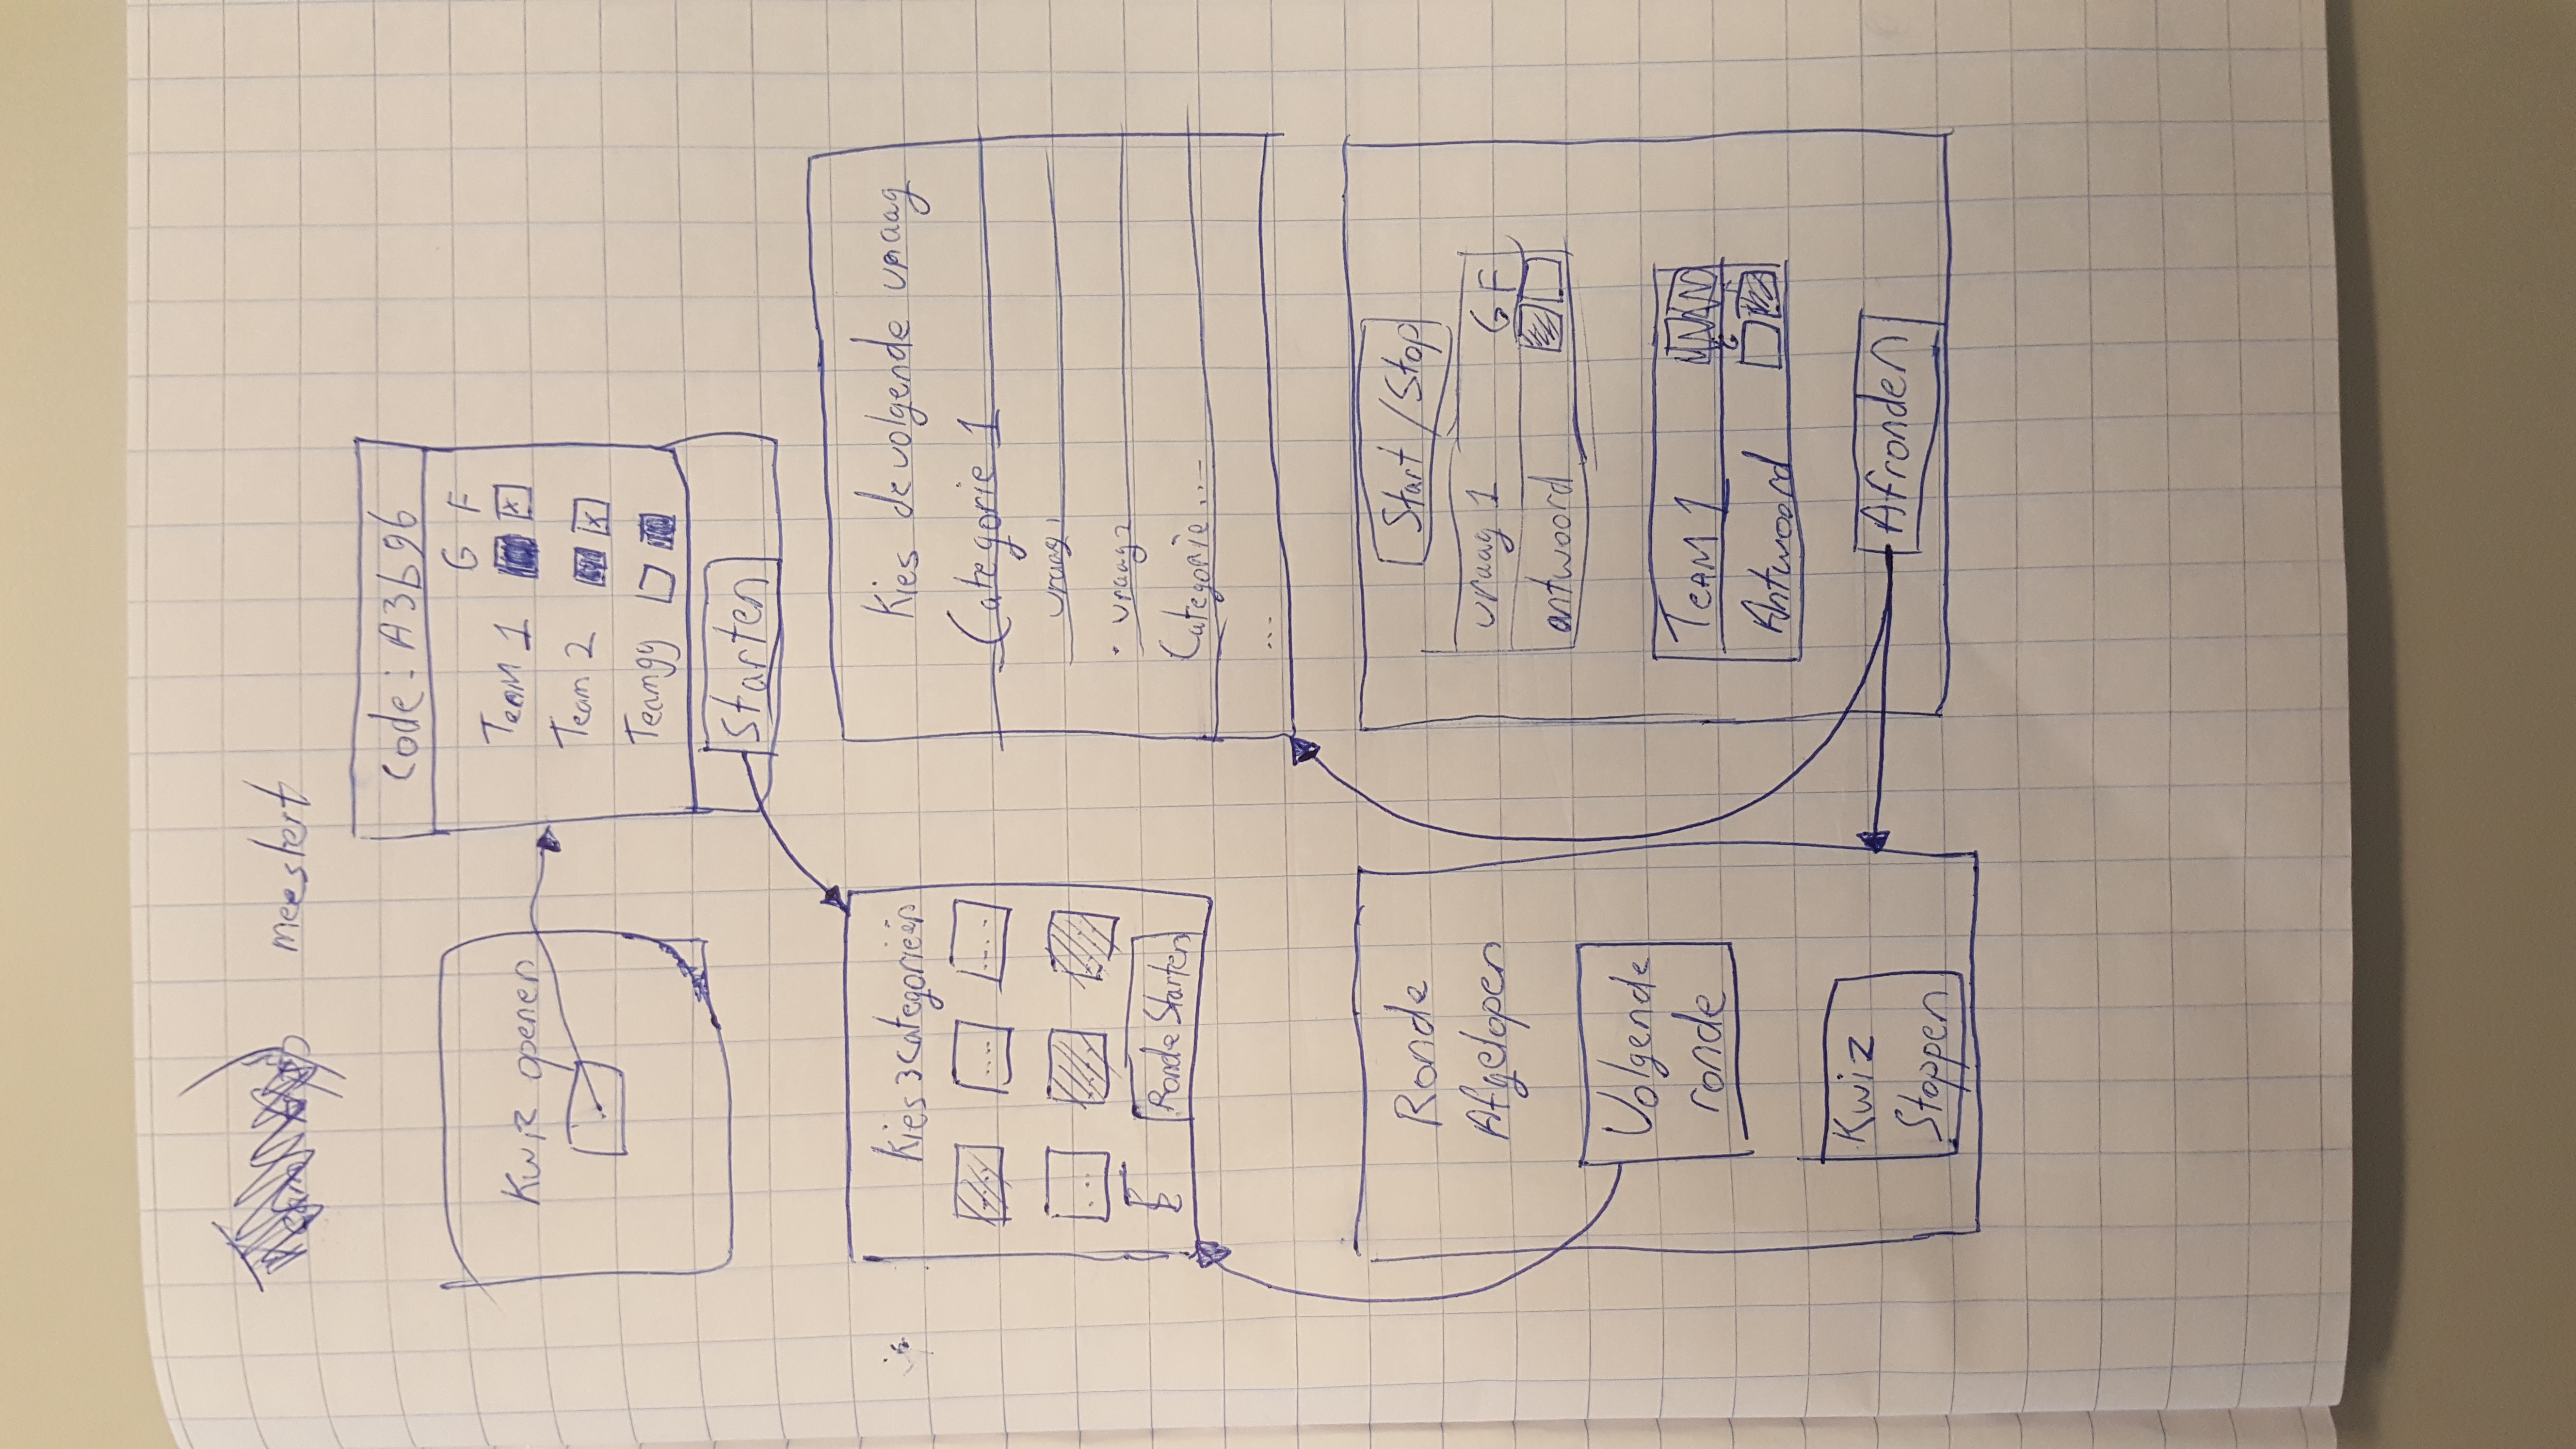 meestert
Kwiz openen
Code: A3b96
G F
TEAM 1
Team 2
Teamgg
Starten
Kies 3 categorieën
Ronde Starten
Kies de volgende vraag
Categorie 1
vraag 1
• vraag 2
Categorie ...
...
Ronde
Afgelopen
Volgende
ronde
Kwiz
Stoppen
Start / Stop
vraag 1 G F
antwoord
TEAM 1
Antwoord
Afronden